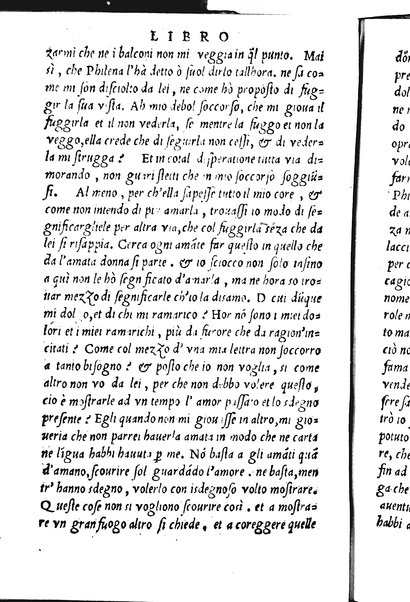 LIBRO
zarmi che ne i balconi non mi veggia in q̃l punto. Mai
sì, che Philena l'hà detto ò suol dirlo tallhora. ne sa co=
me mi son disciolto da lei, ne come hò proposto di fug=
gir la sua vista. Ah mio debol soccorso, che mi gioua il
fuggirla et il non vederla, se mentre la fuggo et non la
veggo, ella crede che di seguirla non cessi, & di veder=
la mi strugga? Et in cotal disperatione tutta via di=
morando, non guari stetti che in mio soccorso soggiũ=
si. Al meno, per ch'ella sapesse tutto il mio core, &
come non intendo di piu amarla, trouassi io modo di se=
gnificargliele per altra via, che col fuggirla sẽza che da
lei si risappia. Cerca ogni amãte far questo in quello che
da l'amata donna si parte. & io sciocco non solo insino
a quì non le hò significato d'amarla, ma ne hora so tro=
uar mezzo di segnificarle ch'io la disamo. D cui dũque
mi dolgo, et di chi mi ramarico? Hor nõ sono i miei do=
lori et i miei ramarichi, più da furore che da ragion'in=
citati? Come col mezzo d'vna mia lettra non soccorro
a tanto bisogno? & posto che io non voglia, sì come
altro non vo da lei, per che non debbo volere questo,
cio è mostrarle ad vn tempo l'amor passato et lo sdegno
presente? Egli quando non mi giouasse in altro, mi gio=
ueria che non parrei hauerla amata in modo che ne carta
ne lĩgua habbi hauuta p̱ me. Nõ basta a gli amãti quã
d'amano, scourire sol guardãdo l'amore. ne basta, men
tr'hanno sdegno, volerlo con isdegnoso volto mostrare.
Queste cose non si vogliono scourire così. et a mostra=
re vn gran fuogo altro si chiede. et a coreggere quelle